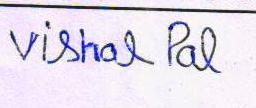 Vishal Pal